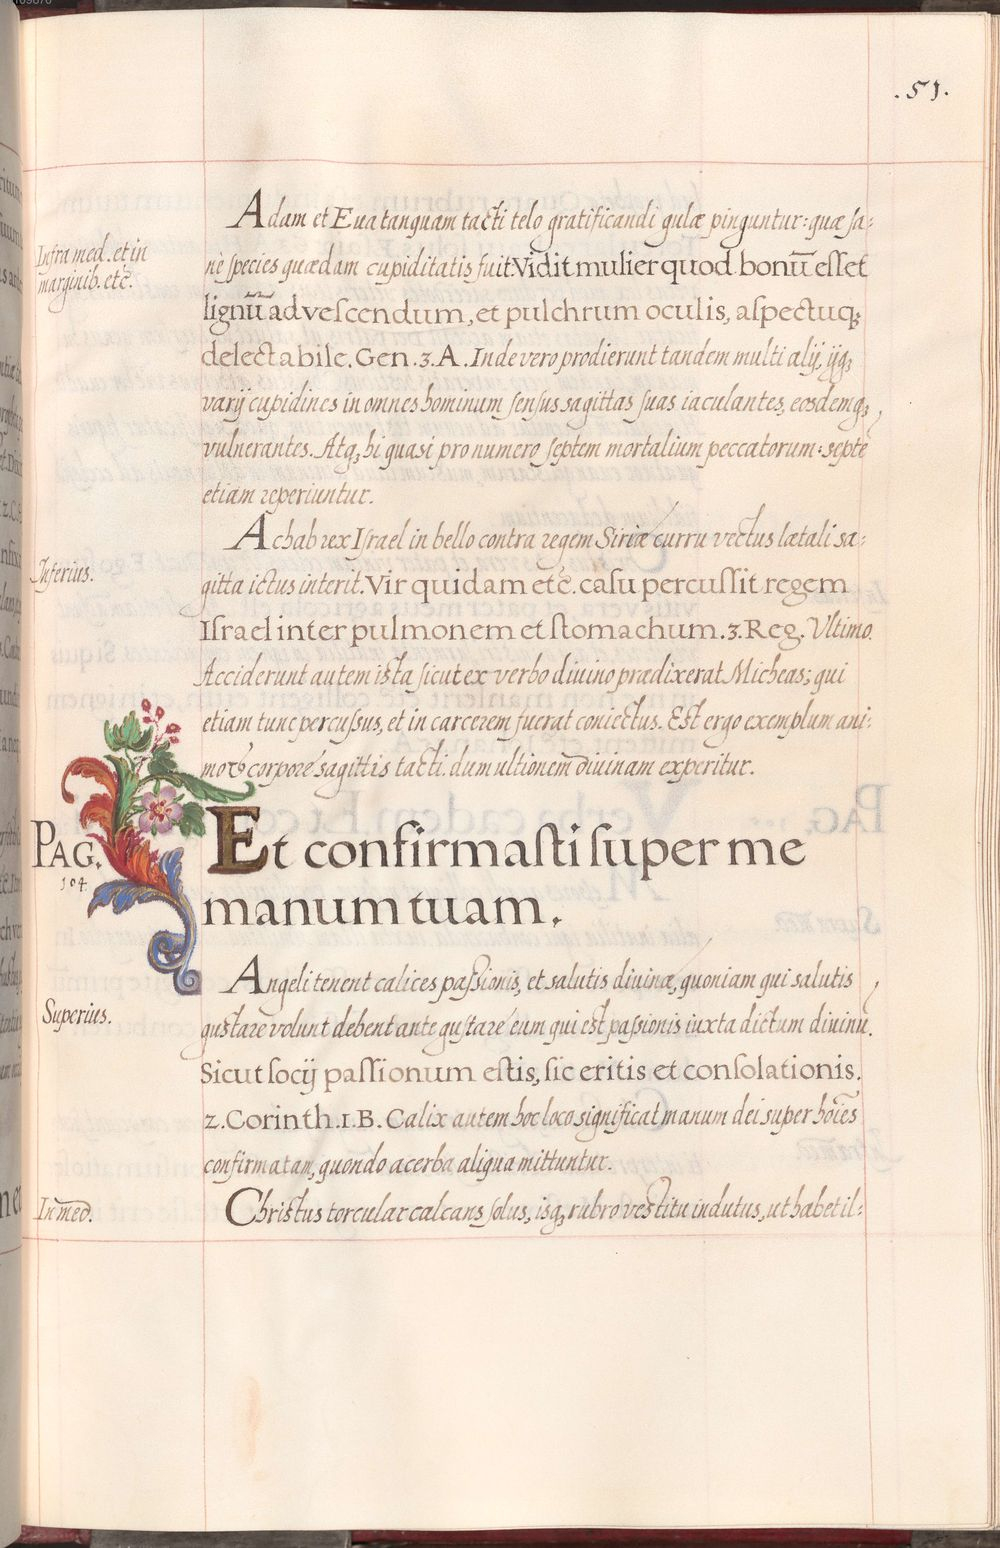 .51.
Adam et Eua tanquam tacti telo gratificandi gulæ pinguntur: quæ sa-
Infra med. et in
marginib. etc̃.
nè species quædam cupiditatis fuit. Vidit mulier quod bonũ esset
lignũ ad vescendum, et pulchrum oculis, aspectuq;
delectabile. Gen. 3. A. Inde vero prodierunt tandem multi alij, ijq;
varij cupidines in omnes hominum sensus sagittas suas iaculantes, eosdemq;
vulnerantes. Atq; hi quasi pro numero septem mortalium peccatorum: septẽ
etiam reperiuntur.
Achab rex Israel in bello contra regem Siriæ curru vectus lætali sa-
Inferius.
gitta ictus interit. Vir quidam etc̃. casu percussit regem
Israel inter pulmonem et stomachum. 3. Reg. Vltimo.
Acciderunt autem ista sicut ex verbo diuino pradixerat Micheas; qui
etiam tunc percussus, et in carcerem fuerat coniectus. Est ergo exemplum ani-
mo et corpore sagittis tacti. dum ultionem diuinam experitur.
PAG.
104.
Et confirmasti super me
manum tuam.
Angeli tenent calices passionis, et salutis diuinæ, quoniam qui salutis
Superius.
gustare volunt debent ante gustare eum qui est passionis iuxta dictum diuinũ.
Sicut socij passionum estis, sic eritis et consolationis.
2. Corinth. 1. B. Calix autem hoc loco significat manum dei super hoĩes
confirmatam, quondo acerba aliqua mittuntur.
In med.
Christus torcular calcans solus, isq; rubro vestitu indutus, ut habet il-